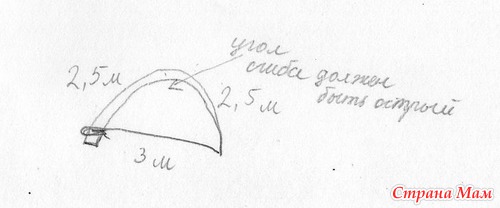 угол
сгиба должен
быть острый
2,5 м
2,5 м
3 м
Страна Мам